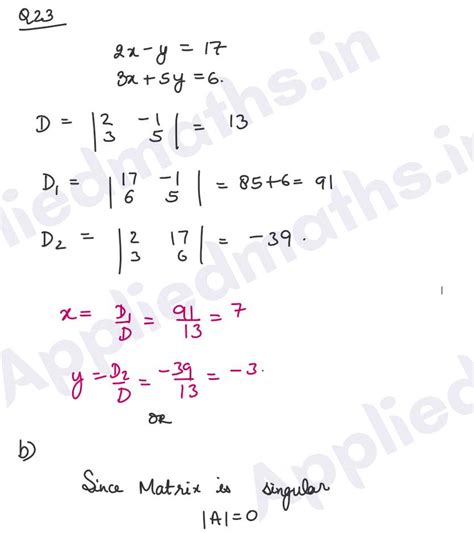 Q23
2x-y = 17
3x+5y = 6.
D = |2 -1; 3 5| = 13
D₁ = |17 -1; 6 5| = 85+6 = 91
D₂ = |2 17; 3 6| = -39.
x = D₁/D = 91/13 = 7
y = D₂/D = -39/13 = -3.
OR
b)
Since Matrix is singular
|A|=0
Appliedmaths.in